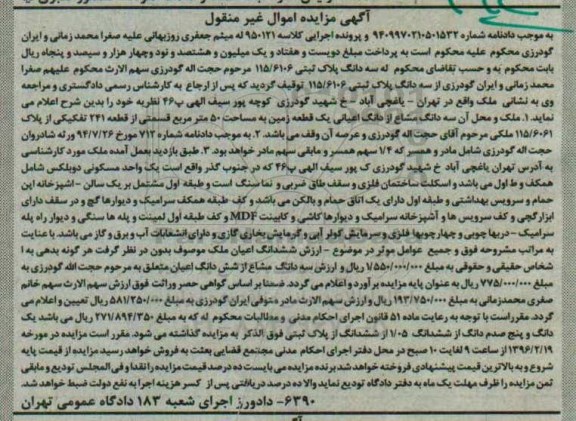 آگهی مزایده اموال غیر منقول
به موجب دادنامه شماره ۹۴۰۹۹۷۰۲۱۰۵۰۱۵۳۲ و پرونده اجرایی کلاسه ۹۵۰۱۲۱ له میثم جعفری روزبهانی علیه صغرا محمد زمانی و ایران
گودرزی محکوم علیه محکوم است به پرداخت مبلغ دویست و هفتاد و یک میلیون و هشتصد و نود وچهار هزار و سیصد و پنجاه ریال
بابت محکوم به و حسب تقاضای محکوم له سه دانگ پلاک ثبتی ۱۱۵/۶۱۰۶ مرحوم حجت اله گودرزی سهم الارث محکوم علیهم صغرا
محمد زمانی و ایران گودرزی از سه دانگ پلاک ثبتی ۱۱۵/۶۱۰۶ توقیف گردید که پس از ارجاع به کارشناس رسمی دادگستری و مراجعه
وی به نشانی ملک واقع در تهران – یاغچی آباد – خ شهید گودرزی کوچه پور سیف الهی پ۴۶ نظریه خود را بدین شرح اعلام می
نماید ۱. ملک و محل آن سه دانگ مشاع از دانگ اعیانی یک قطعه زمین به مساحت ۵۰ متر مربع قسمتی از قطعه ۲۴۱ تفکیکی از پلاک
۱۱۵/۶۰۶۱ ملکی مرحوم آقای حجت اله گودرزی و عرصه آن وقف می باشد. ۲. به موجب دادنامه شماره ۷۱۲ مورخ ۹۴/۷/۲۶ ورثه شادروان
حجت اله گودرزی شامل مادر و همسر که ۱/۴ سهم همسر و مابقی سهم مادر خواهد بود. ۳. طبق بازدید بعمل آمده ملک مورد کارشناسی
به آدرس تهران یاغچی آباد خ شهید گودرزی ک پور سیف الهی پ۴۶ که در جنوب گذر واقع است یک واحد مسکونی دوبلکس شامل
همکف و ط اول می باشد و اسکلت ساختمان فلزی و سقف طاق ضربی و نما سنگ است و طبقه اول مشتمل بر یک سالن –اشپزخانه این
حمام و سرویس بهداشتی و طبقه اول دارای یک اتاق حمام و بالکن می باشد و کف طبقه همکف سرامیک و دیوارها گچ و در سقف دارای
ابزار گچی و کف سرویس ها و آشپزخانه سرامیک و دیوارها کاشی و کابینت MDF و کف طبقه اول لمینت و پله ها سنگی و دیوار راه پله
سرامیک – دربها چوبی و چهارچوبها فلزی و سرمایش کولر آبی و گرمایش بخاری گازی و دارای انشعابات آب و برق و گاز می باشد. با عنایت
به مراتب مشروحه فوق و جمیع عوامل موثر در موضوع – ارزش ششدانگ اعیان ملک موصوف بدون در نظر گرفت هر گونه بدهی به ا
شخاص حقیقی و حقوقی به مبلغ ۱/۵۵۰/۰۰۰/۰۰۰ ریال و ارزش سه دانگ مشاع از شش دانگ اعیان متعلق به مرحوم حجت الله گودرزی به
مبلغ ۷۷۵/۰۰۰/۰۰۰ ریال به عنوان پایه مزایده بر آورد و اعلام می گردد. ضمنا بر اساس گواهی حصر وراثت فوق ارزش سهم الارث سهم خانم
صغری محمدزمانی به مبلغ ۱۹۳/۷۵۰/۰۰۰ ریال و ارزش سهم الارث مادر متوفی ایران گودرزی به مبلغ ۵۸۱/۲۵۰/۰۰۰ ریال تعیین و اعلام می
گردد. مقرر است با توجه به رعایت ماده ۵۱ قانون اجرای احکام مدنی و مطالبات محکوم له که به مبلغ ۲۷۱/۸۹۴/۳۵۰ ریال می باشد یک
دانگ و پنج صدم دانگ از ششدانگ ۱/۰۵ از ششدانگ از پلاک ثبتی فوق الذکر به مزایده گذاشته می شود. مقرر است مزایده در مورخه
۱۳۹۶/۲/۱۹ از ساعت ۹ لغایت ۱۰ صبح در محل دفتر اجرای احکام مدنی مجتمع قضایی بعثت به فروش خواهد رسید مزایده از قیمت پایه
شروع و به بالاترین قیمت پیشنهادی فروخته خواهد شد برنده مزایده می بایست ده درصد قیمت مزایده را نقدا و فی المجلس تودیع و مابقی
ثمن مزایده را ظرف مهلت یک ماه به دفتر دادگاه تودیع نماید والا ده درصد دریافتی پس از کسر هزینه اجرا به نفع دولت ضبط خواهد شد.
۶۳۹۰– دادورز اجرای شعبه ۱۸۳ دادگاه عمومی تهران